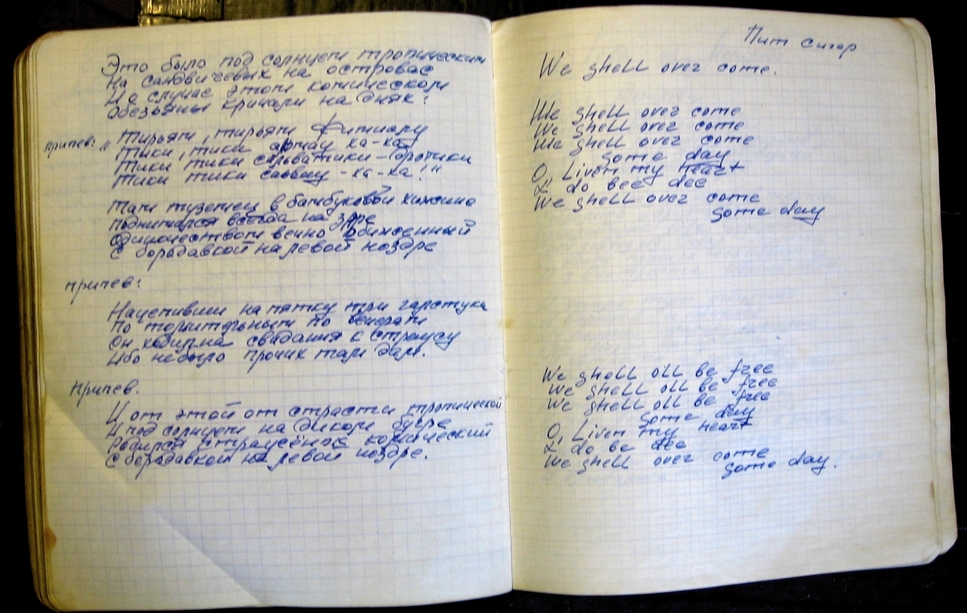 Это было под солнцем тропическим
На сандвичевых на островас
И о случае этом комическом
Обезьяны кричали на днях:
припев: „Тирьям, тирьям
Тики, тики ха-ха
Тики, тики
Тики тики -ха-ха!"
Там туземец в бамбуковой хижине
Поднимался всегда на заре
Одиночеством вечно обиженный
С бородавкой на левой ноздре
припев:
Нацепивши на пятку три галстука
По торжительным по вечерам
Он ходил на свидания к страусу
Ибо не было прочих там дам.
Припев.
И от этой от страсти тропической
И под солнцем на диком бугре
Родился страусёнок комический
С бородавкой на левой ноздре.
Пит Сигер
We shell over come.
We shell over come
We shell over come
We shell over come
some day
O, Liven my heart
I do bee dee
We shell over come
some day
We shell oll be free
We shell oll be free
We shell oll be free
some day
O, Liven my heart
I do be dee
We shell over come
some day.